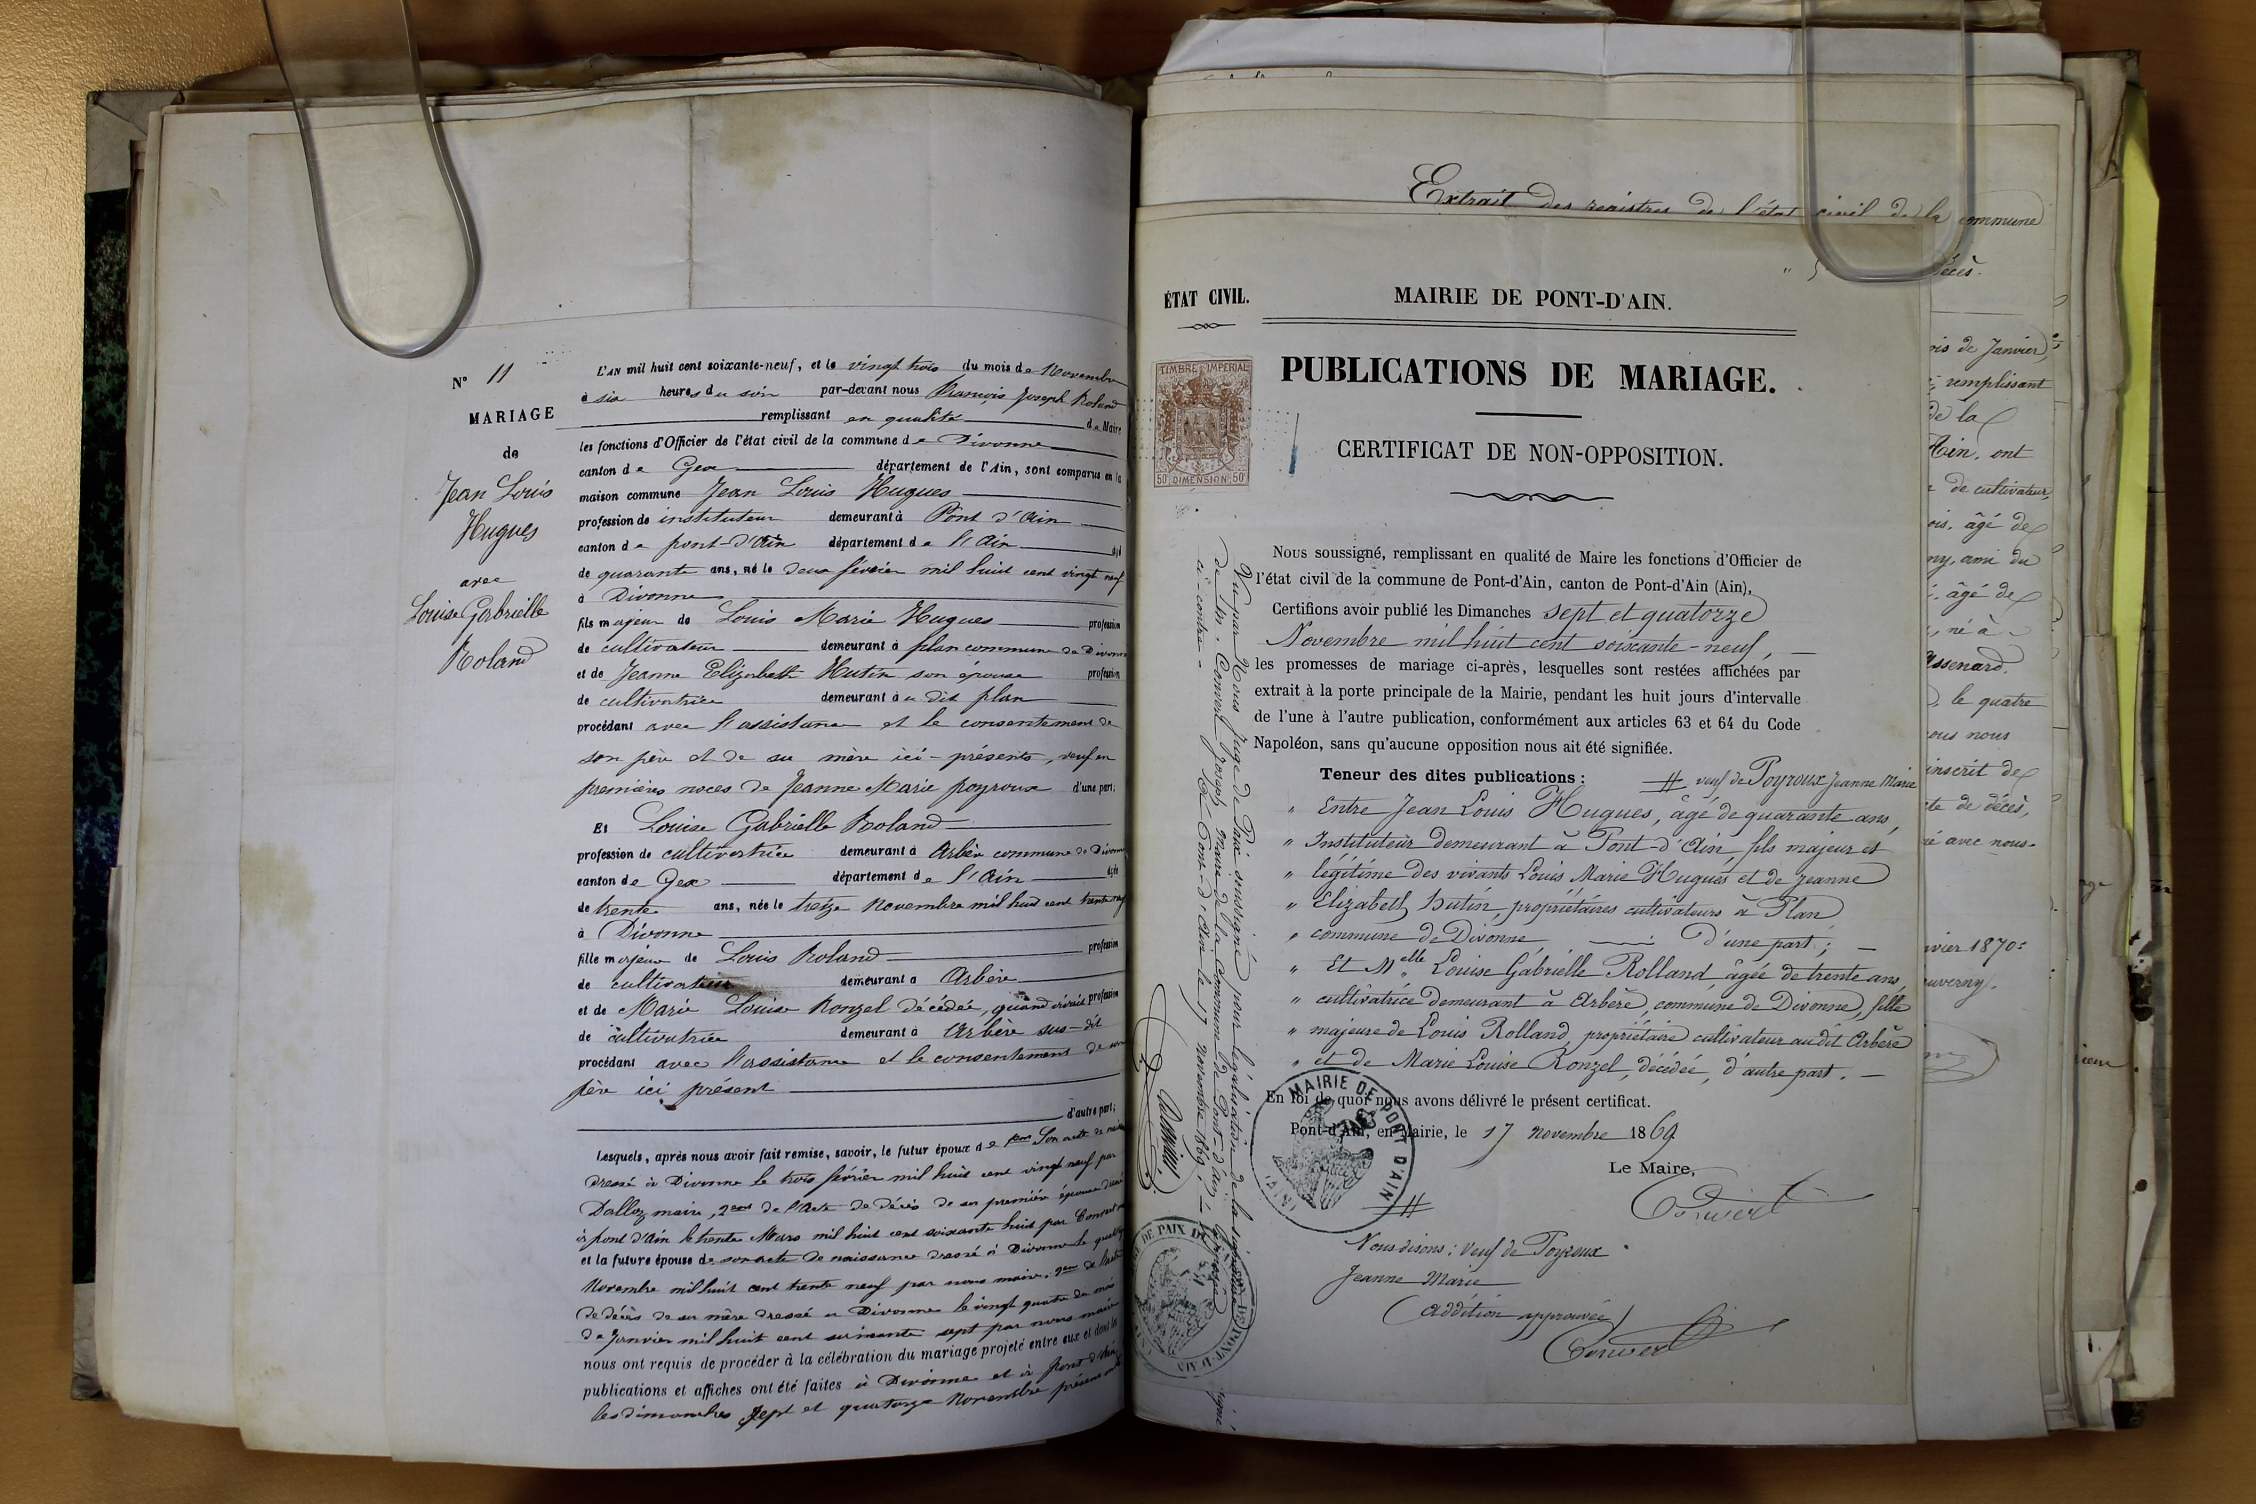 N° 11
MARIAGE
de
Jean Louis
Hugues
avec
Louise Gabrielle
Roland
L'AN mil huit cent soixante-neuf, et le vingt trois du mois de Novembre
à six heures du soir par-devant nous François Joseph Roland
remplissant en qualité de Maire
les fonctions d'Officier de l'état civil de la commune de Divonne
canton de Gex département de l'Ain, sont comparus en la
maison commune Jean Louis Hugues
profession de instituteur demeurant à Pont d'Ain
canton de pont-d'Ain département de l'Ain âgé
de quarante ans, né le deux février mil huit cent vingt neuf
à Divonne
fils majeur de Louis Marie Hugues profession
de cultivateur demeurant à plan commune de Divonne
et de Jeanne Elizabeth Hutin son épouse profession
de cultivatrice demeurant à u dit plan
procédant avec l'assistance et le consentement de
son père et de sa mère ici-présents, veuf en
premières noces de Jeanne Marie poyroux d'une part;
Et Louise Gabrielle Roland
profession de cultivatrice demeurant à Arbère commune de Divonne
canton de Gex département de l'Ain âgée
de trente ans, née le treize Novembre mil huit cent trente neuf
à Divonne
fille majeure de Louis Roland profession
de cultivateur demeurant à Arbère
et de Marie Louise Ronzel décédée, quand vivait profession
de cultivatrice demeurant à Arbère sus-dit
procédant avec l'assistance et le consentement de son
père ici présent
d'autre part;
Lesquels, après nous avoir fait remise, savoir, le futur époux de Son acte de
dressé à Divonne le trois février mil huit cent vingt neuf par
Dalloz maire, de l'acte de décès de sa première épouse
à pont d'Ain le trente Mars mil huit cent soixante huit par Convert
et la future épouse de son acte de naissance dressé à Divonne le
Novembre mil huit cent trente neuf par nous maire, de l'acte
de décès de sa mère dressé à Divonne le vingt quatre du mois
de Janvier mil huit cent soixante sept par nous maire
nous ont requis de procéder à la célébration du mariage projeté entre eux et dont les
publications et affiches ont été faites à Divonne et à pont d'Ain
les dimanches sept et quatorze Novembre présent
Extrait des registres de l'état civil de la commune
décès.
ÉTAT CIVIL.
MAIRIE DE PONT-D'AIN.
TIMBRE IMPÉRIAL
50 DIMENSION 50
PUBLICATIONS DE MARIAGE.
CERTIFICAT DE NON-OPPOSITION.
Nous soussigné, remplissant en qualité de Maire les fonctions d'Officier de
l'état civil de la commune de Pont-d'Ain, canton de Pont-d'Ain (Ain),
Certifions avoir publié les Dimanches sept et quatorze
Novembre mil huit cent soixante-neuf,
les promesses de mariage ci-après, lesquelles sont restées affichées par
extrait à la porte principale de la Mairie, pendant les huit jours d'intervalle
de l'une à l'autre publication, conformément aux articles 63 et 64 du Code
Napoléon, sans qu'aucune opposition nous ait été signifiée.
Teneur des dites publications : # veuf de Poyroux Jeanne Marie
" Entre Jean Louis Hugues, âgé de quarante ans,
" Instituteur demeurant à Pont-d'Ain, fils majeur et
" légitime des vivants Louis Marie Hugues et de Jeanne
" Elizabeth hutin, propriétaires cultivateurs à Plan
" commune de Divonne d'une part ;
" Et Melle Louise Gabrielle Rolland âgée de trente ans,
" cultivatrice demeurant à Arbère, commune de Divonne, fille
" majeure de Louis Rolland, propriétaire cultivateur au dit Arbère
" et de Marie Louise Ronzel, décédée, d'autre part.
En foi de quoi nous avons délivré le présent certificat.
Pont-d'Ain, en Mairie, le 17 novembre 1869
Le Maire,
Convert
#
Nous disons : veuf de Poyroux
Jeanne Marie
(addition approuvée)
Convert
MAIRIE DE PONT D'AIN
(AIN)
Vu par Nous Juge de Paix soussigné pour légalisation de la signature
de Mr. Convert Joseph maire de la Commune de Pont-d'Ain, apposée
ci-contre. Pont-d'Ain le 17 novembre 1869.
DE PAIX DE PONT-D'AIN
ois de Janvier,
remplissant
de la
Ain, ont
de cultivateur,
ois, âgé de
ny, ami du
âgé de
, né à
assenard.
, le quatre
ous nous
inscrit de
te de décès,
né avec nous.
nvier 1870:
uverny.